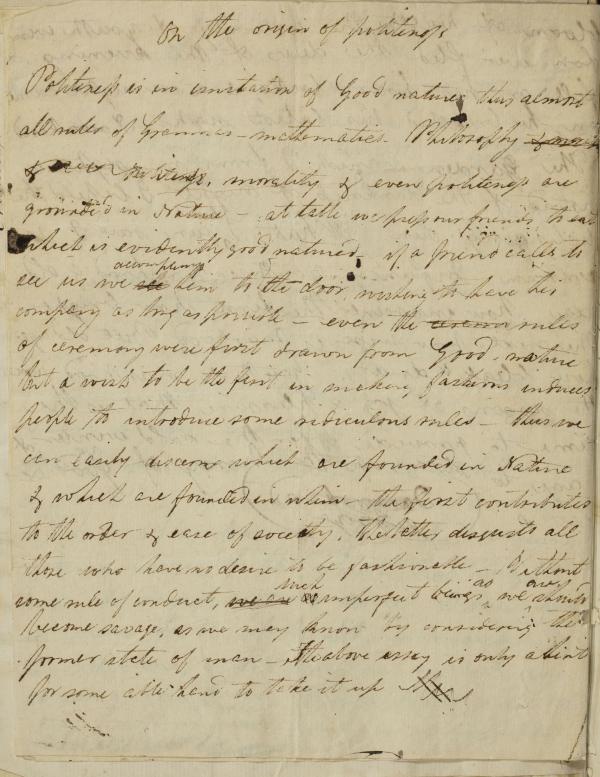 On the origin of politeness
Politeness is in imitation of Good nature, thus almost
all rules of Grammar – mathematics – Philosophy
politeness, morality & even politeness are
grounded in Nature – at table we press our friends to eat
which is evidently good natured – if a friend calls to
see us we see accompany him to the door wishing to have his
company as long as possible – even the rules
of ceremony were first drawn from Good-nature
but a wish to be the first in making fashions induces
people to introduce some ridiculous rules – thus we
can easily discern which are founded in Nature
& which are founded in whim – the first contributes
to the order & ease of society, the latter disgusts all
those who have no desire to be fashionable – Without
some rule of conduct, we are such imperfect beings as we are should
become savage, as we may know by considering the
former state of man – the above essay is only a hint
for some able hand to take it up